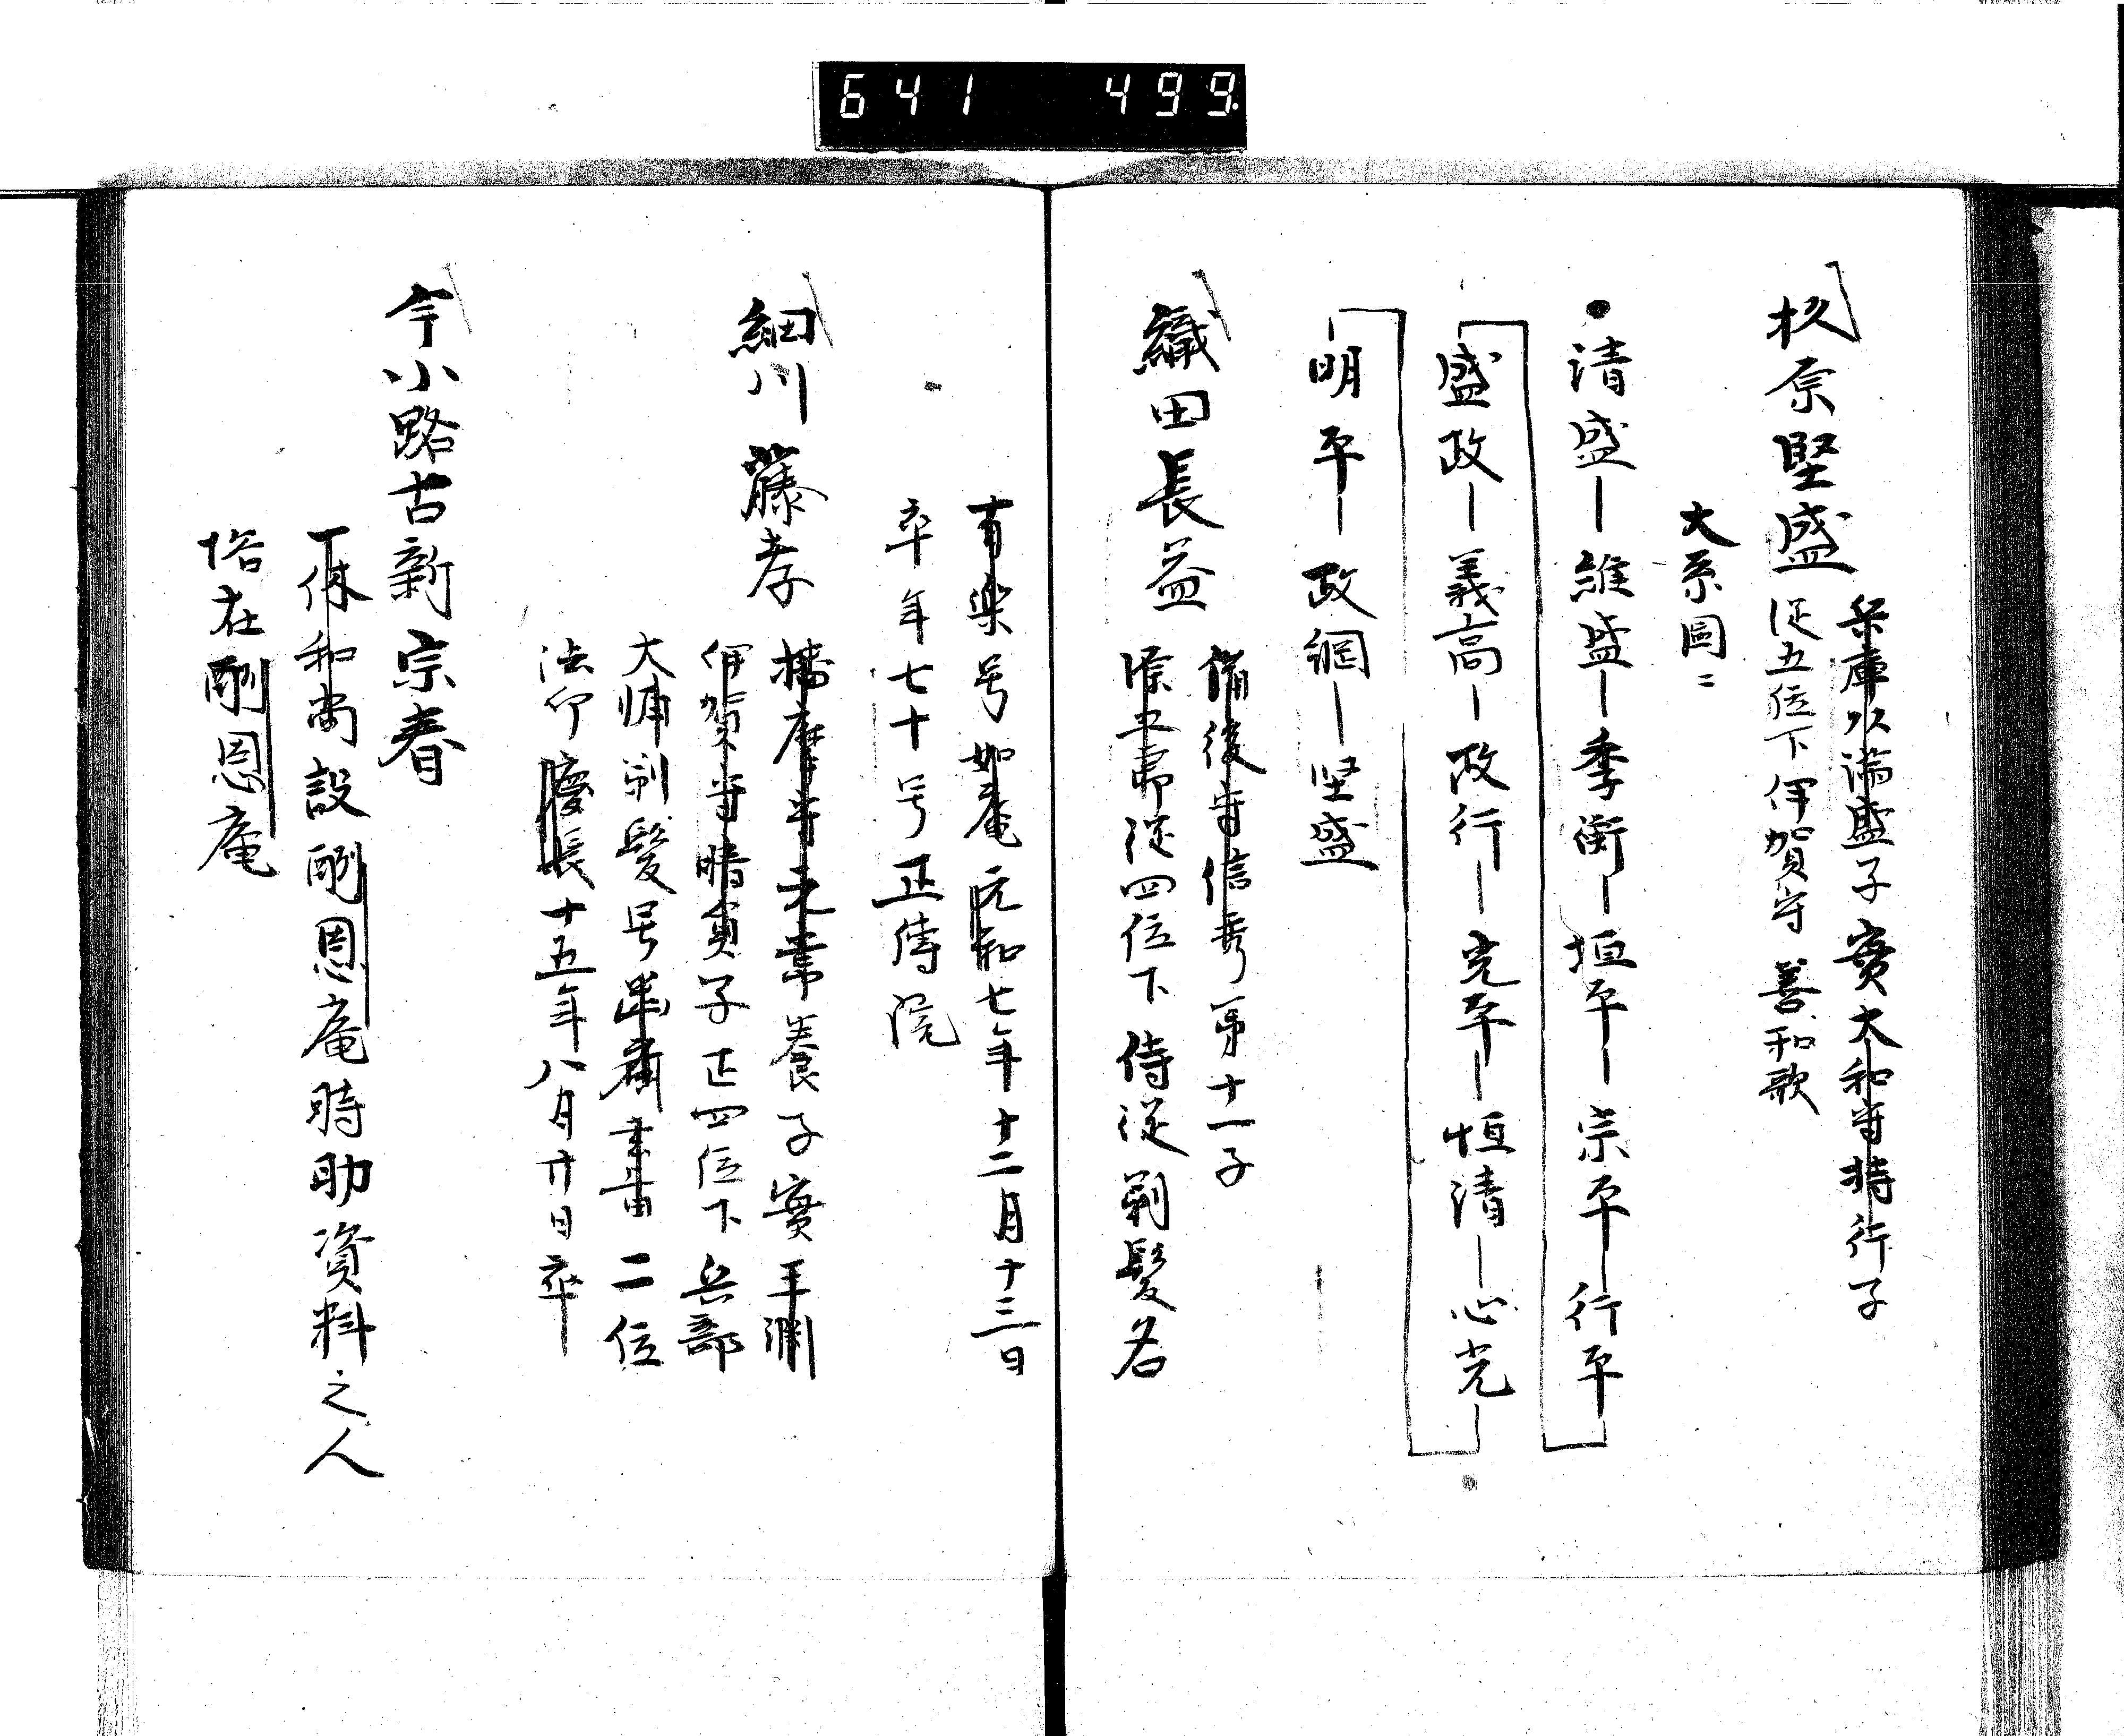 641 499
杉原堅盛
兵庫頭満盛子 實大和守時行子
従五位下伊賀守 善和歌
大系圖ニ
清盛―維盛―季衡―恒平―宗平―行平
盛政―義高―政行―完平―恒清―心光―
明平―政綱―堅盛
織田長益
備後守信秀第十一子
源五郎従四位下侍従剃髪名
有楽号如庵元和七年十二月十三日
卒年七十号正傳院
細川藤孝
播磨守元常養子實三淵
伊賀守晴員子正四位下兵部
大輔剃髪号幽齋玄旨二位
法印慶長十五年八月廿日卒
今小路古新宗春
一休和尚設酬恩庵時助資料之人
俗在酬恩庵